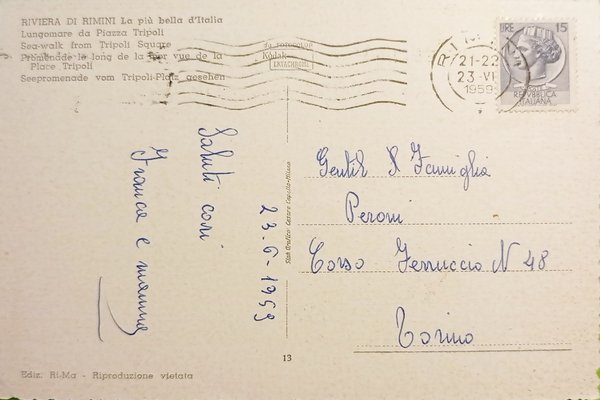 RIVIERA DI RIMINI La più bella d'Italia
Lungomare da Piazza Tripoli
Sea-walk from Tripoli Square
Promenade le long de la mer vue de la
Place Tripoli
Seepromenade vom Tripoli-Platz gesehen
da FOTOCOLOR
Kodak
EKTACHROME
RIMINI
21-22
23·VI
1959
LIRE 15
REPVBBLICA
ITALIANA
Saluti cari
Franca e mamma
23-6-1959
Stab. Grafico Cesare Capello-Milano
Gentil S Famiglia
Peroni
Corso Ferruccio N 48
Torino
13
Ediz. Ri-Ma - Riproduzione vietata